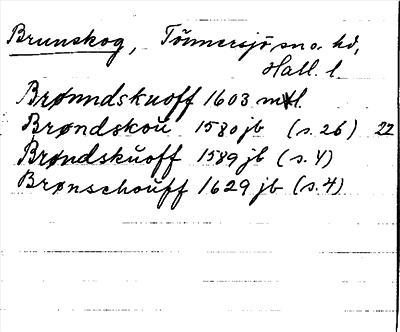 Brunskog, Tönnersjö sn o. hd,
Hall. l.
Brønndskuoff 1603 mtl.
Brøndskou 1580 jb (s. 26) 22
Brøndskuoff 1589 jb (s. 4)
Brønschouff 1629 jb (s. 4)